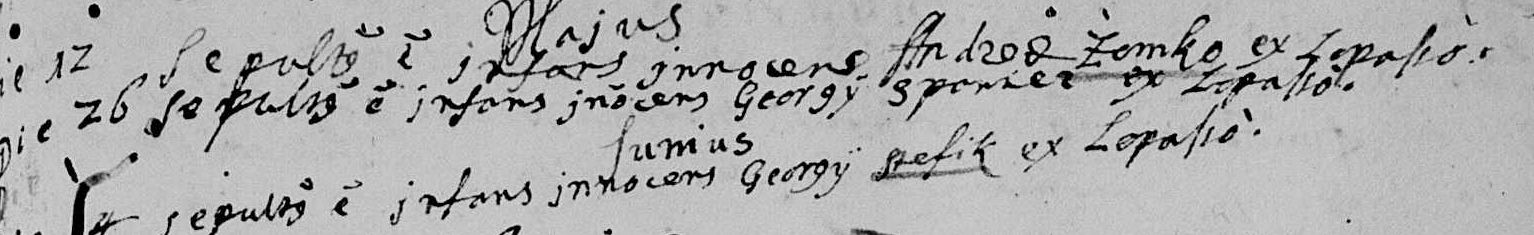 Majus
die 12 Sepultq̃ ẽ infans innocens Andreæ Zomko ex Lopassò.
Die 26 Sepultq̃ ẽ infans iñocens Georgÿ Spaniel ex Lopassò.
Junius
sepultq̃ ẽ infans innocens Georgÿ stefik ex Lopassò.